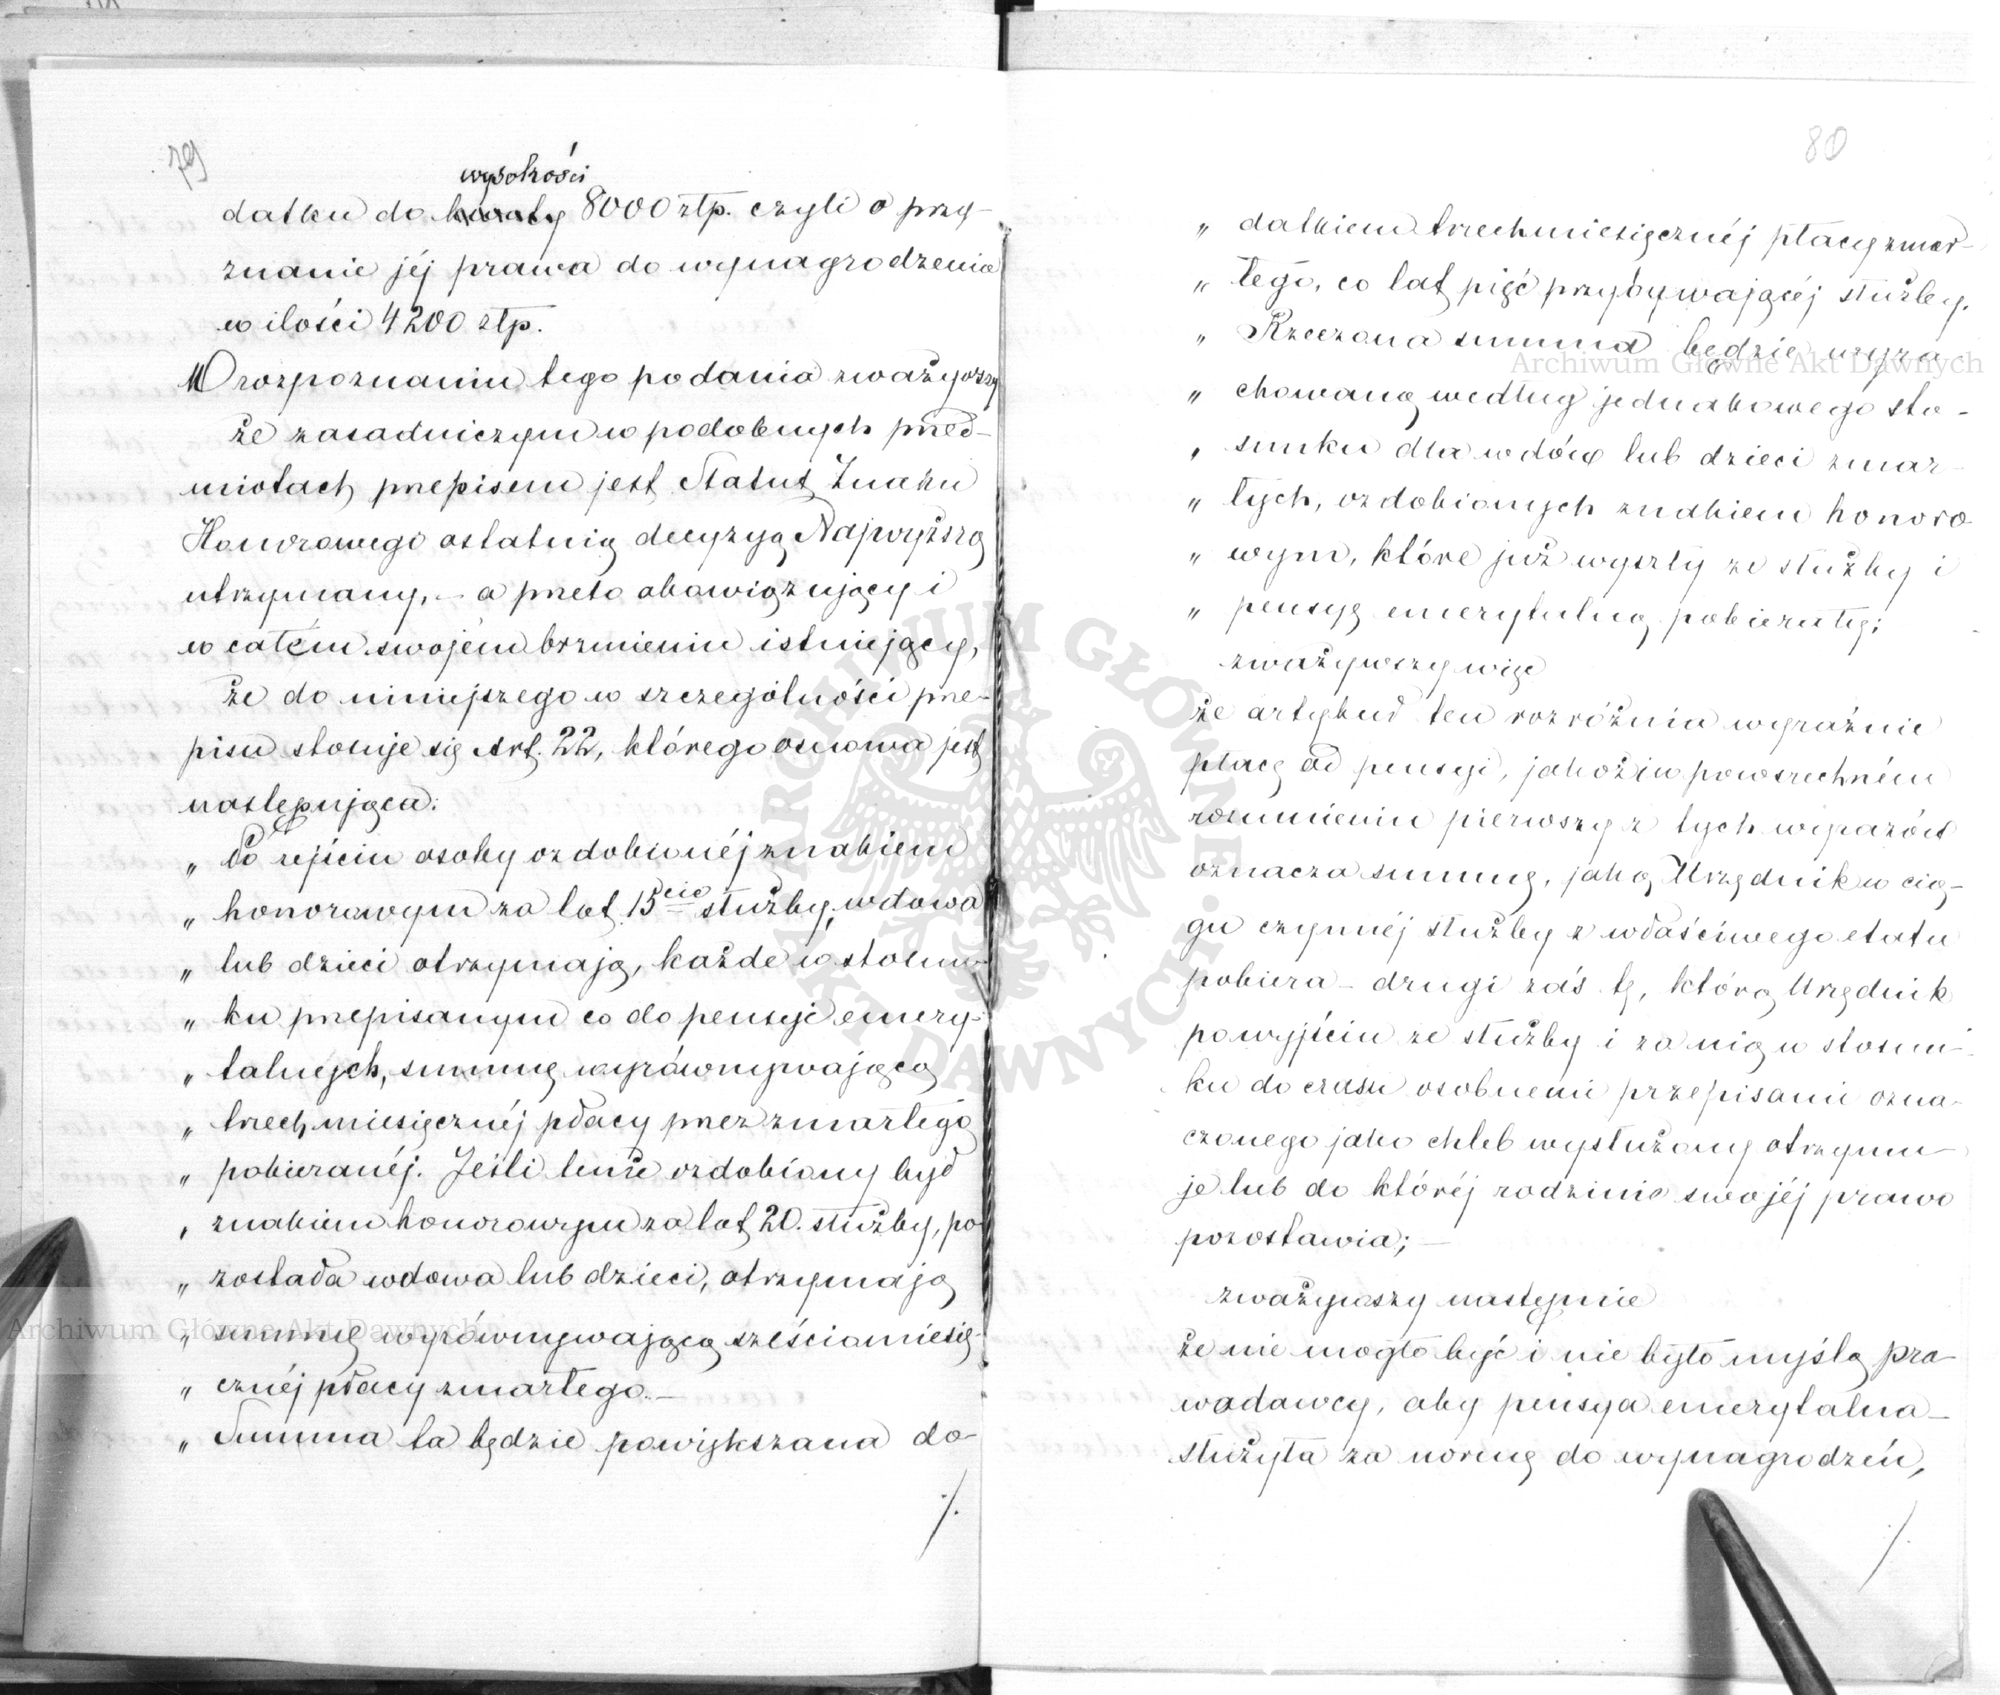 79
wysokości
datku do kwoty 8000 złp. czyli o przy-
znanie jéj prawa do wynagrodzenia
w ilości 4200 złp.
W rozpoznaniu tego podania zważywszy
że zasadniczym w podobnych przed-
miotach przepisem jest Statut Znaku
Honorowego ostatnią decyzyą Najwyższą
utrzymany, – a przeto obowiązujący i
w całém swojém brzmieniu istniejący,
że do niniejszego w szczególności prze-
pisu stosuje się Art. 22, którego osnowa jest
następująca:
„ Po zejściu osoby ozdobionéj znakiem
„ honorowym za lat 15cie służby, wdowa
„ lub dzieci otrzymają, każde w stosun-
„ ku przepisanym co do pensyi emery-
„ talnych, summę wyrównywającą
„ trzechmiesięcznéj płacy przez zmarłego
„ pobieranéj. Jeśli tenże ozdobiony był
„ znakiem honorowym za lat 20. służby, po
„ została wdowa lub dzieci, otrzymają
„ summę wyrównywającą sześciomiesię-
„ cznéj płacy zmarłego. —
„ Summa ta będzie powiększana do-
./.
80
„ datkiem trzechmiesięcznéj płacy zmar-
„ łego, co lat pięć przybywającéj służby.
„ Rzeczona summa będzie wyra-
„ chowaną według jednakowego sto-
„ sunku dla wdów lub dzieci zmar-
„ łych, ozdobionych znakiem honoro
„ wym, które już wyszły ze służby i
„ pensyę emerytalną pobierały;
zważywszy więc
że artykuł ten rozróżnia wyraźnie
płacę od pensyi, jakoż w powszechném
rozumieniu pierwszy z tych wyrazów
oznacza summę, jaką Urzędnik w cią-
gu czynnéj służby z właściwego etatu
pobiera – drugi zaś tę, którą Urzędnik
po wyjściu ze służby i za nią w stosun-
ku do czasu osobnemi przepisami ozna-
czonego jako chleb wysłużony otrzymu-
je lub do któréj rodzinie swojéj prawo
pozostawia; —
zważywszy następnie
że nie mogło być i nie było myślą pra-
wodawcy, aby pensya emerytalna
służyła za normę do wynagrodzeń,
./.
Archiwum Główne Akt Dawnych
Archiwum Główne Akt Dawnych
ARCHIWUM GŁÓWNE AKT DAWNYCH